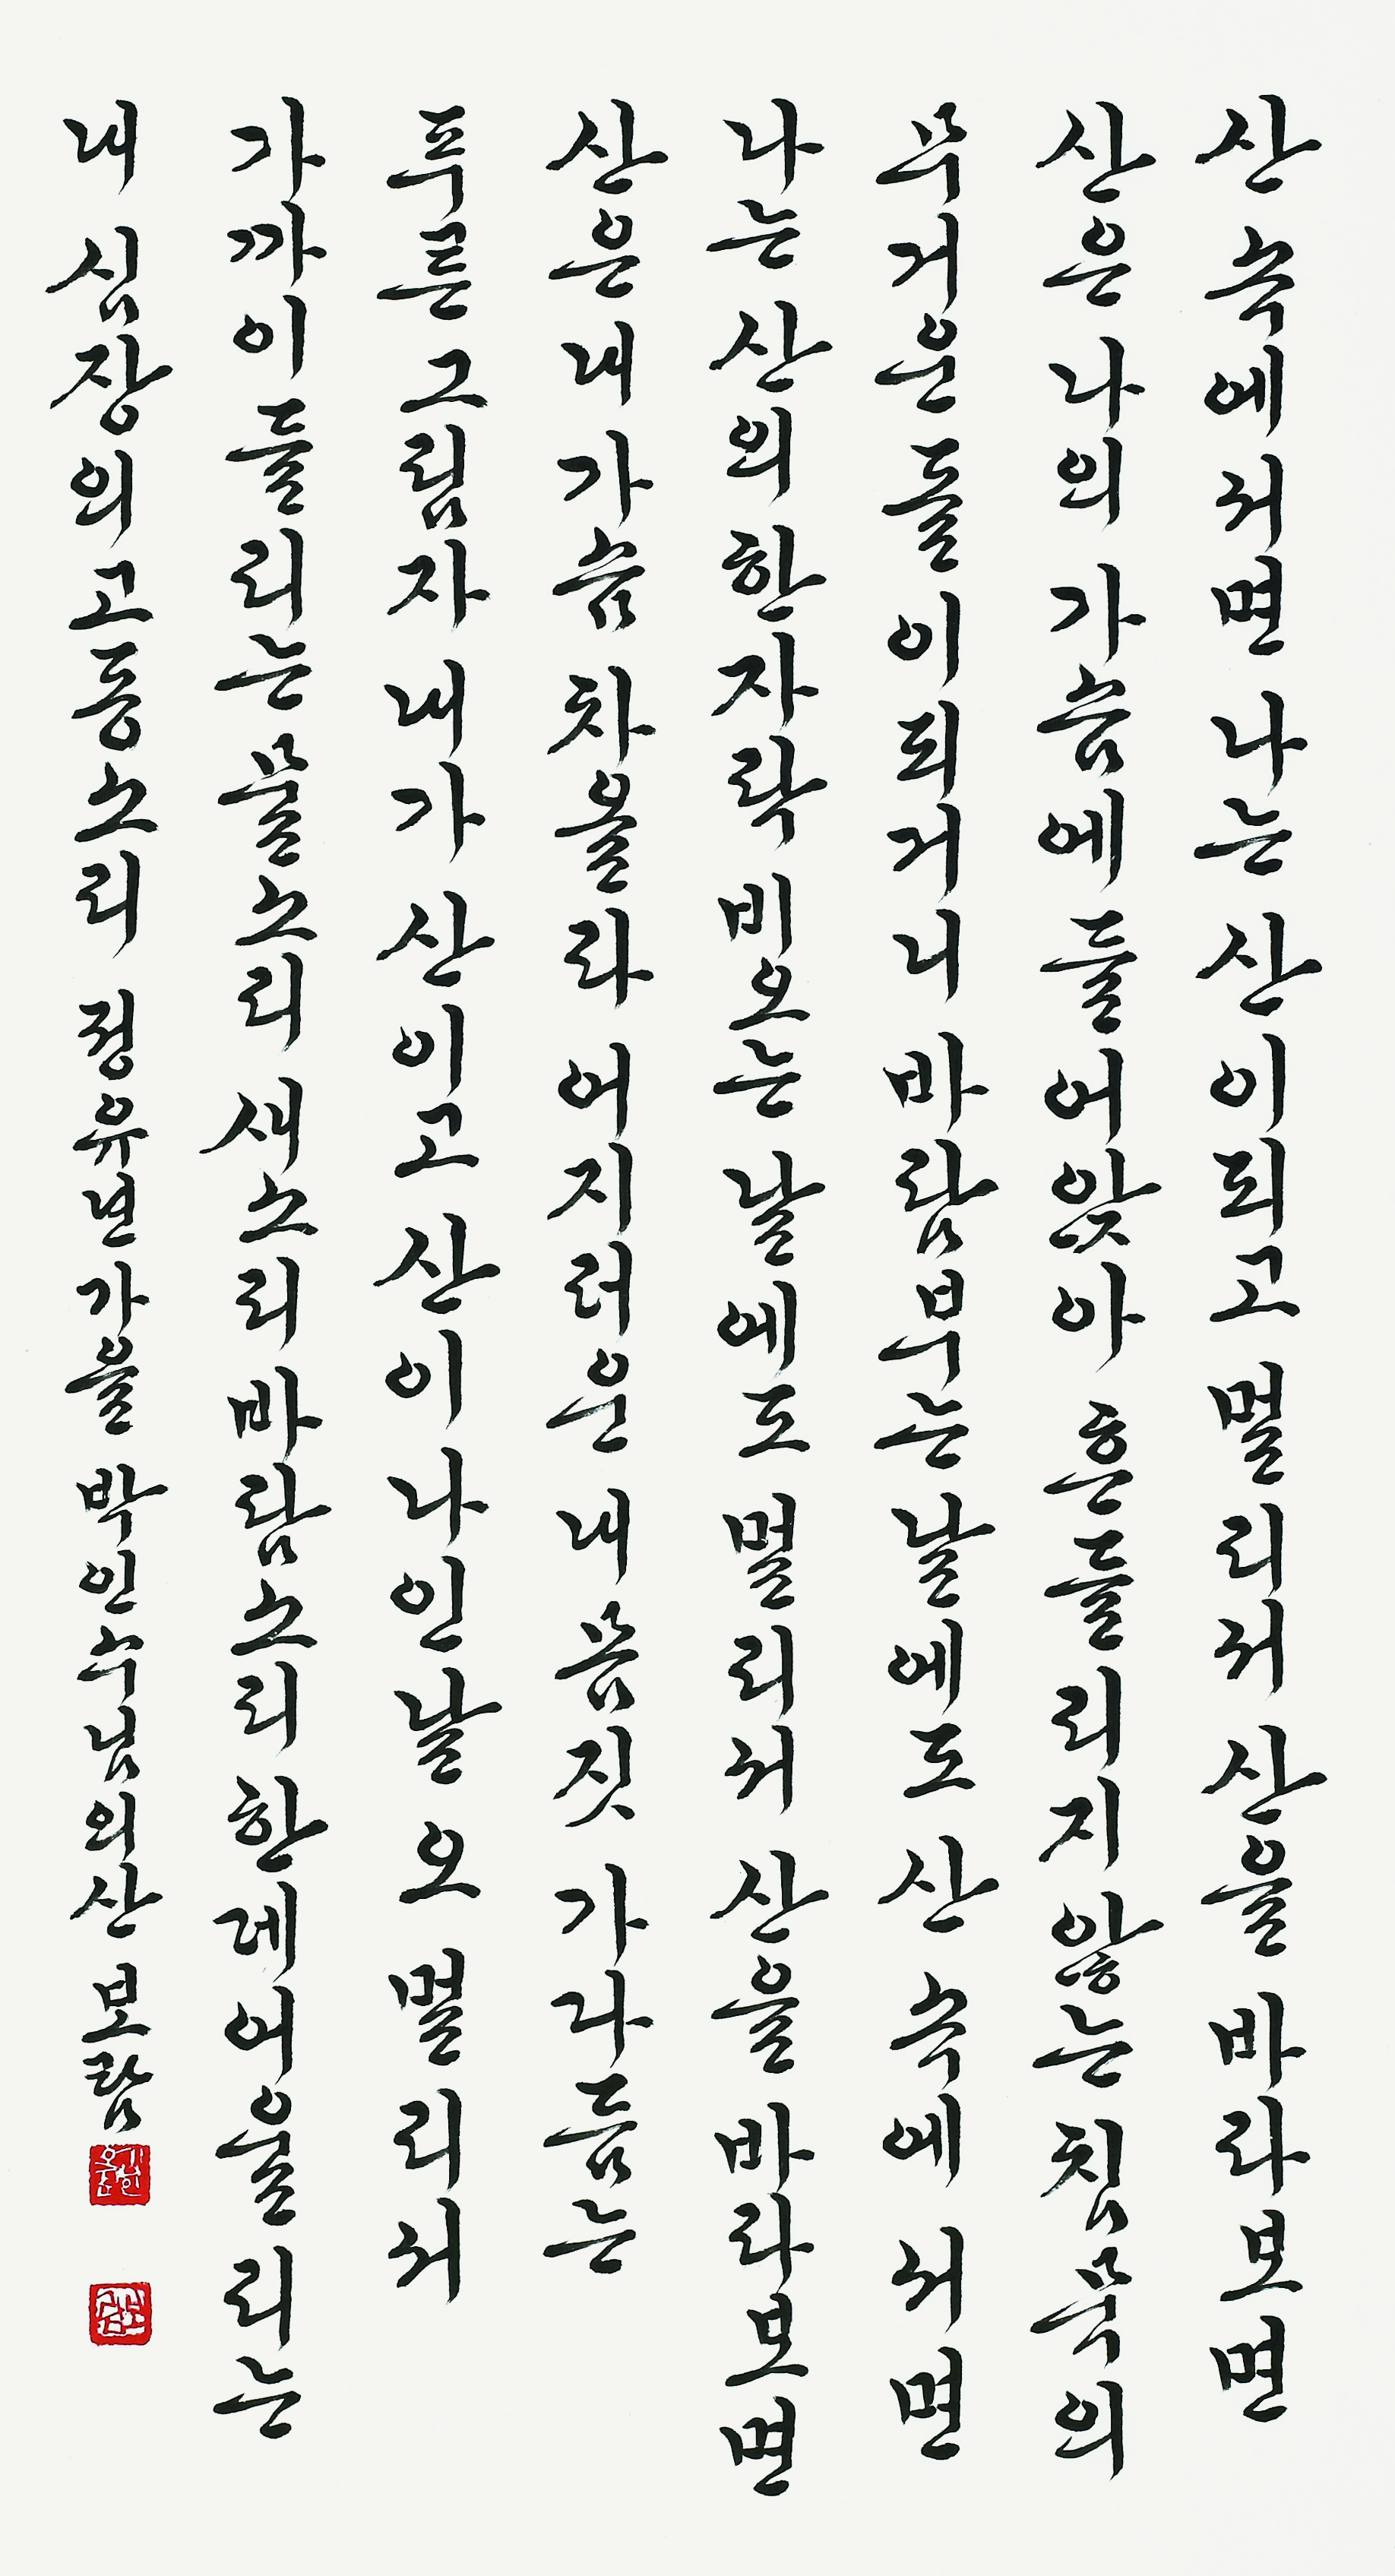 산 속에 서면 나는 산이 되고 멀리서 산을 바라보면
산은 나의 가슴에 들어앉아 흔들리지 않는 침묵의
무거운 돌이 되거니 바람 부는 날에도 산 속에 서면
나는 산의 한 자락 비오는 날에도 멀리서 산을 바라보면
산은 내 가슴 차올라 어지러운 내 몸짓 가다듬는
푸른 그림자 내가 산이고 산이 나인 날 오 멀리서
가까이 들리는 물소리 새소리 바람소리 한데 어울리는
내 심장의 고동소리 정유년 가을 박인수님의 산 보람